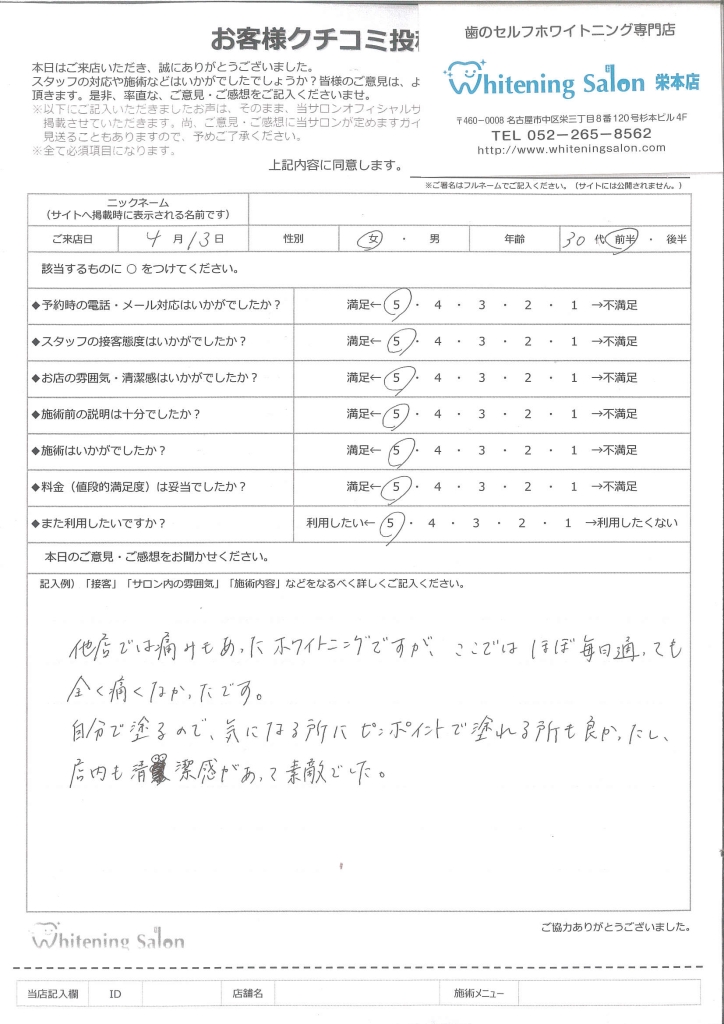 お客様クチコミ投
歯のセルフホワイトニング専門店
Whitening Salon 栄本店
〒460-0008 名古屋市中区栄三丁目8番120号杉本ビル4F
TEL 052-265-8562
http://www.whiteningsalon.com
本日はご来店いただき、誠にありがとうございました。
スタッフの対応や施術などはいかがでしたでしょうか?皆様のご意見は、よ
頂きます。是非、率直な、ご意見・ご感想をご記入くださいませ。
※以下にご記入いただきましたお声は、そのまま、当サロンオフィシャルサ
掲載させていただきます。尚、ご意見・ご感想に当サロンが定めますガイ
見送ることもありますので、予めご了承ください。
※全て必須項目になります。
上記内容に同意します。
※ご署名はフルネームでご記入ください。(サイトには公開されません。)
ニックネーム
(サイトへ掲載時に表示される名前です)
ご来店日 4 月 13 日 性別 女 ・ 男 年齢 30 代 前半 ・ 後半
該当するものに ○ をつけてください。
◆予約時の電話・メール対応はいかがでしたか? 満足← 5 ・ 4 ・ 3 ・ 2 ・ 1 →不満足
◆スタッフの接客態度はいかがでしたか? 満足← 5 ・ 4 ・ 3 ・ 2 ・ 1 →不満足
◆お店の雰囲気・清潔感はいかがでしたか? 満足← 5 ・ 4 ・ 3 ・ 2 ・ 1 →不満足
◆施術前の説明は十分でしたか? 満足← 5 ・ 4 ・ 3 ・ 2 ・ 1 →不満足
◆施術はいかがでしたか? 満足← 5 ・ 4 ・ 3 ・ 2 ・ 1 →不満足
◆料金(値段的満足度)は妥当でしたか? 満足← 5 ・ 4 ・ 3 ・ 2 ・ 1 →不満足
◆また利用したいですか? 利用したい← 5 ・ 4 ・ 3 ・ 2 ・ 1 →利用したくない
本日のご意見・ご感想をお聞かせください。
記入例)「接客」「サロン内の雰囲気」「施術内容」などをなるべく詳しくご記入ください。
他店では痛みもあったホワイトニングですが、ここではほぼ毎日通っても
全く痛くなかったです。
自分で塗るので、気になる所にピンポイントで塗れる所も良かったし、
店内も清潔感があって素敵でした。
ご協力ありがとうございました。
Whitening Salon
当店記入欄 ID 店舗名 施術メニュー